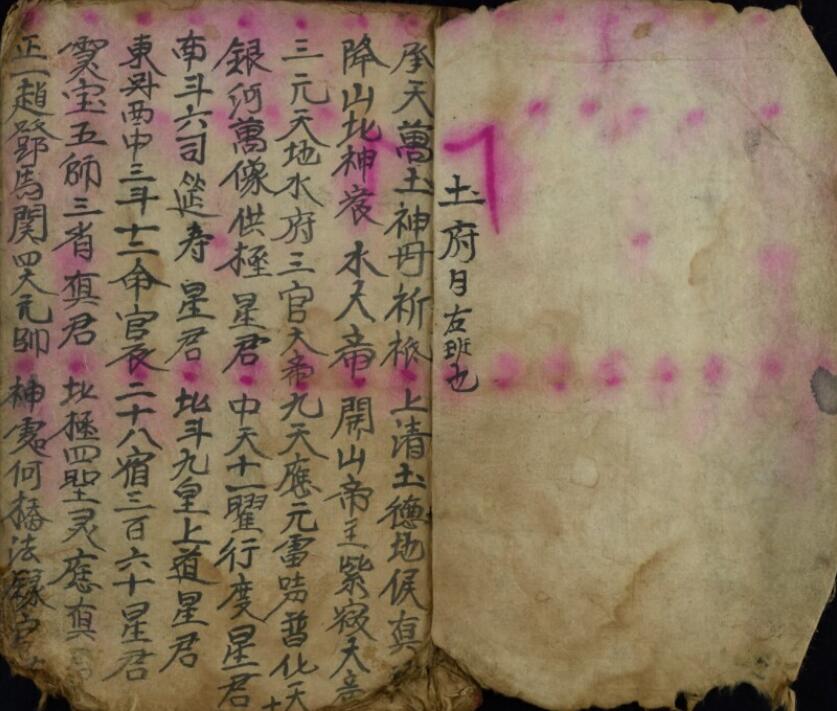 土府月右班也
承天萬土神母祈祗 上清土德地侯真
降山北神袞 水天帝 開山帝主紫微天帝
三元天地水府三官大帝九天應元雷声普化天
銀河萬像供極星君 中天十一曜行度星君
南斗六司延寿星君 北斗九皇上道星君
東斗西中三斗十二命官辰二十八宿三百六十星君
灵宝五師三省真君 北極四聖灵應真君
正一趙鄧馬関四大元帅 神霄何橋法籙官